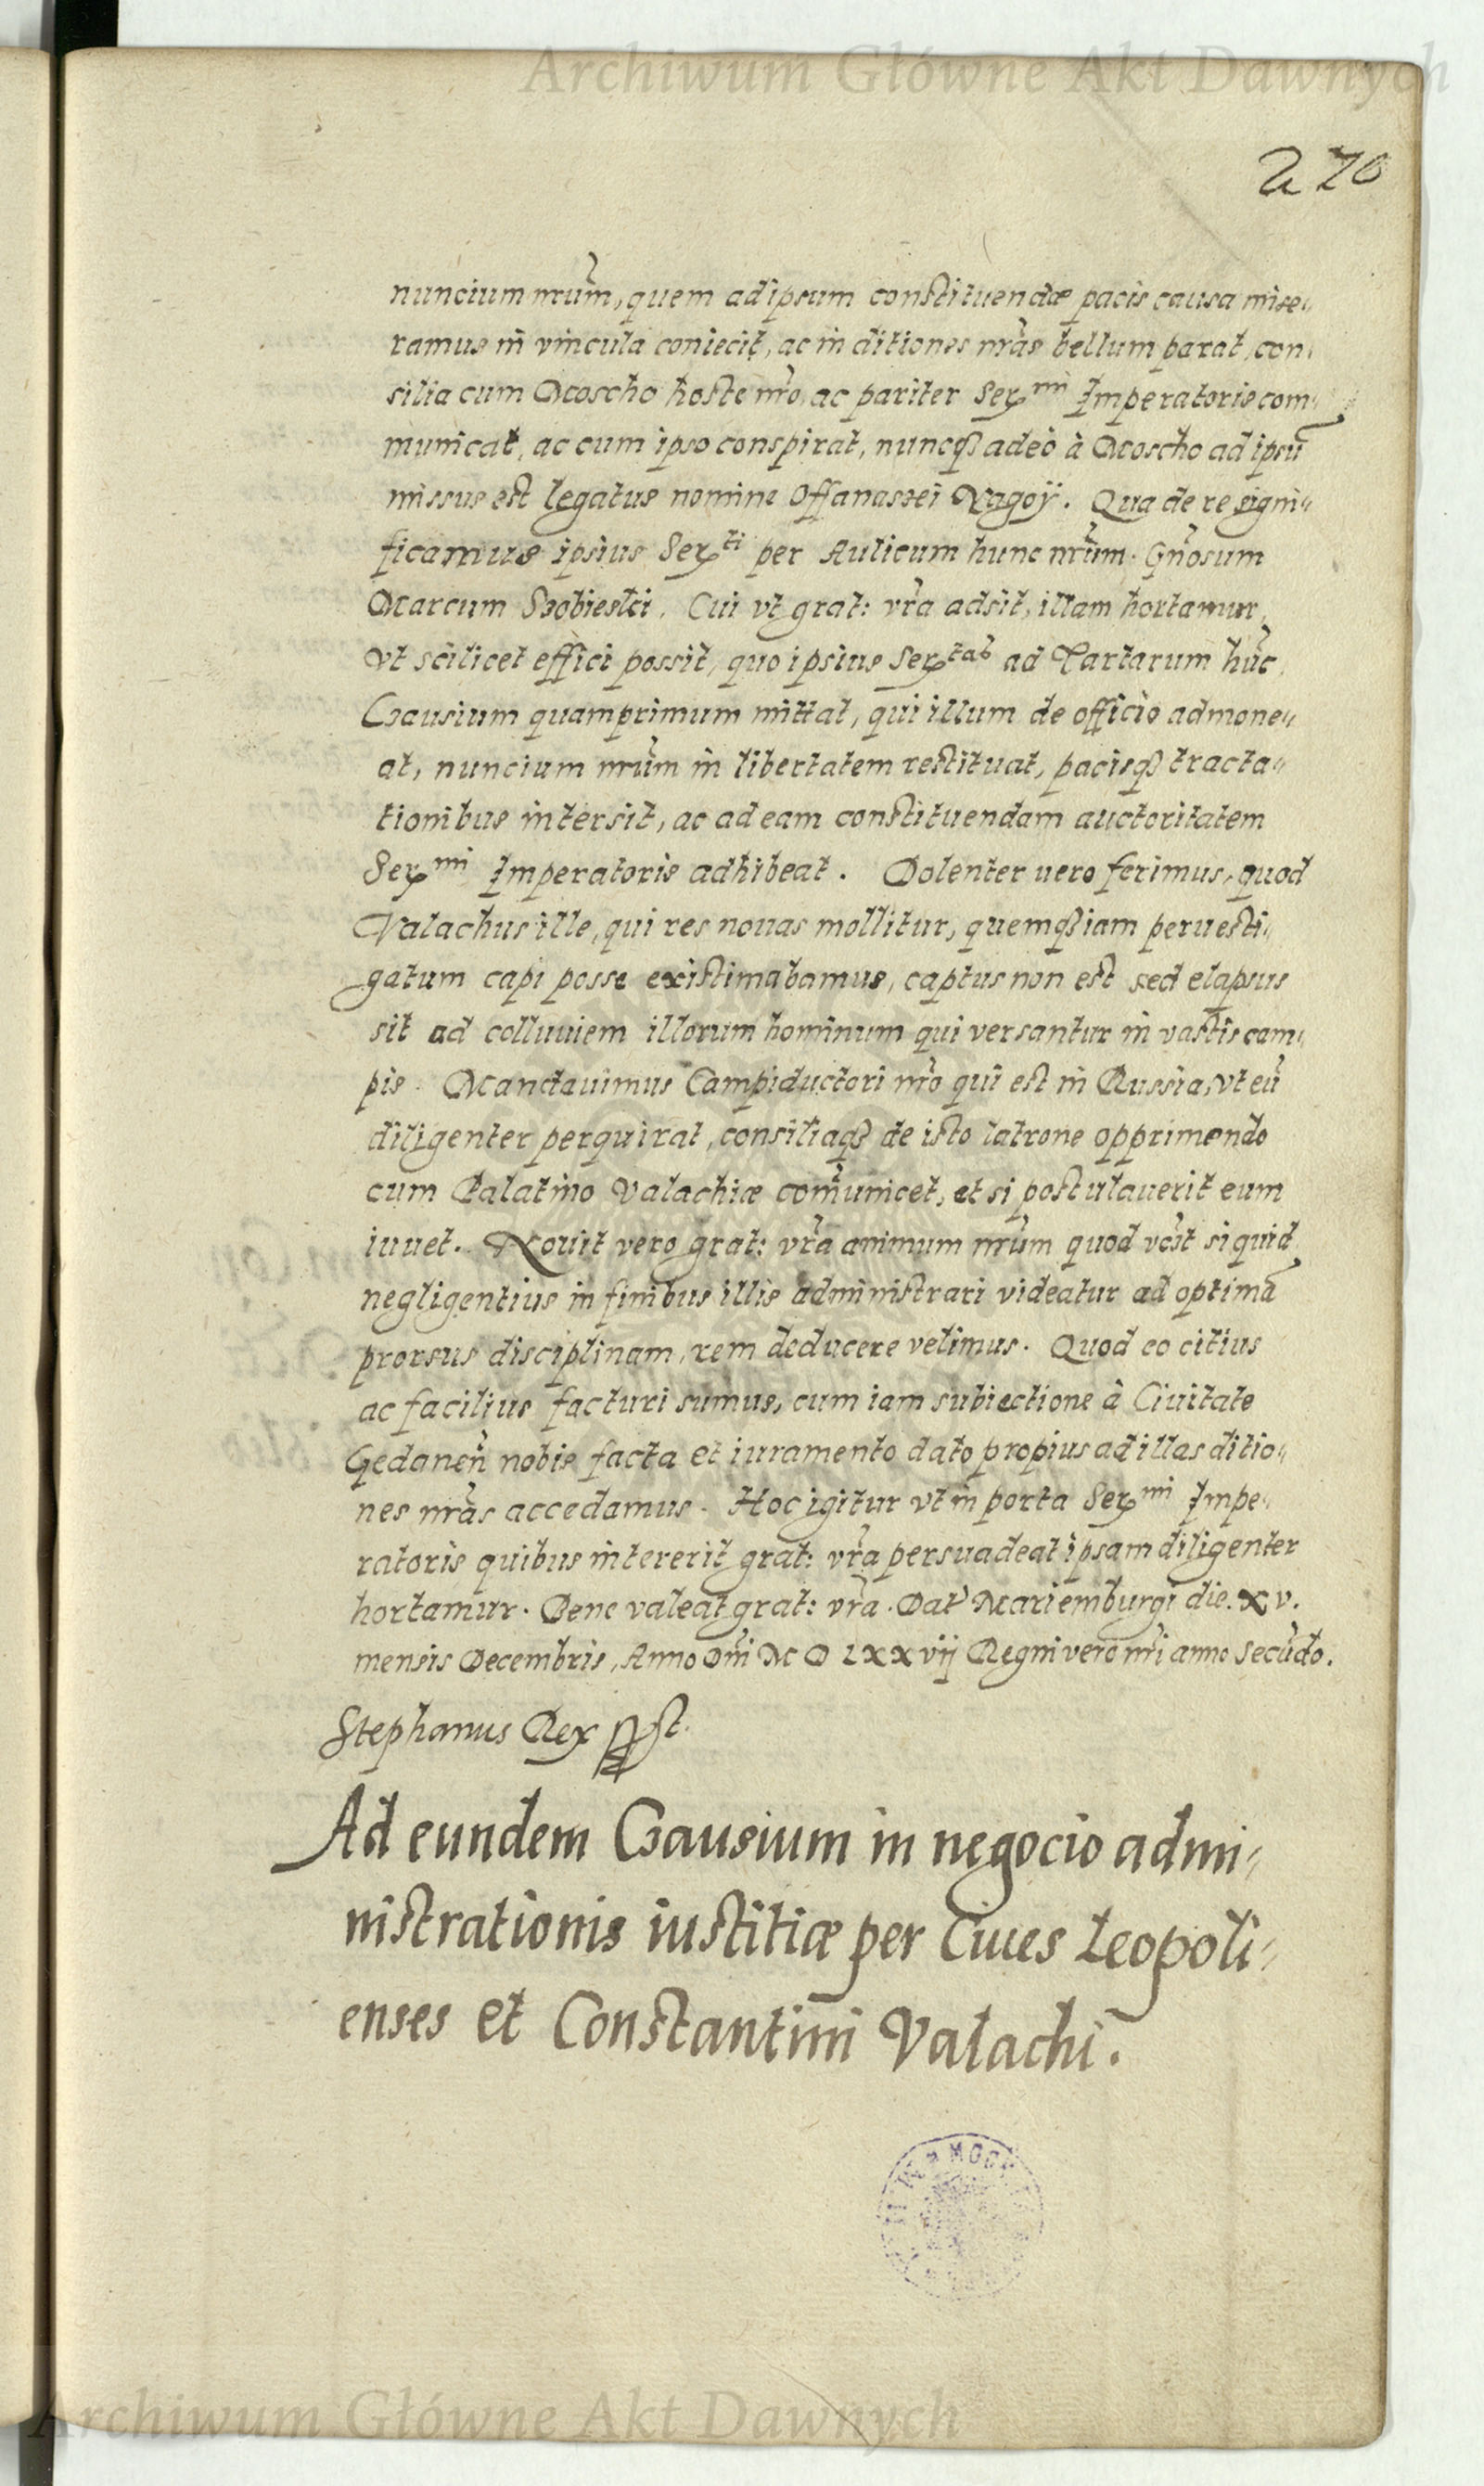 Archiwum Główne Akt Dawnych
270
nuncium nr̃um, quem ad ipsum constituendæ pacis causa mise„
ramus in vincula coniecit, ac in ditiones nr̃as bellum parat, con„
silia cum Moscho hoste nr̃o, ac pariter Ser^mi Imperatoris com„
municat, ac cum ipso conspirat, nuncq3 adeò à Moscho ad ipsũ
missus est legatus nomine Offanassei Nagoÿ. Qua de re signi„
ficamus ipsius Ser^ti per Aulicum hunc nr̃um Gñosum
Marcum Sobieski. Cui vt grat: vr̃a adsit, illam hortamur,
vt scilicet effici possit, quo ipsius Ser^tas ad Tartarum hũc
Czausium quamprimum mittat, qui illum de officio admone„
at, nuncium nr̃um in libertatem restituat, pacisq3 tracta„
tionibus intersit, ac ad eam constituendam auctoritatem
Ser^mi Imperatoris adhibeat. Dolenter uero ferimus, quod
Valachus ille, qui res nouas mollitur, quemq3 iam peruesti„
gatum capi posse existimabamus, captus non est sed elapsus
sit ad colluuiem illorum hominum qui versantur in vastis cam„
pis. Mandauimus Campiductori nr̃o qui est in Russia, vt eũ
diligenter perquirat, consiliaq3 de isto latrone opprimendo
cum Palatino Valachiæ com̃unicet, et si postulauerit eum
iuuet. Nouit vero grat: vr̃a animum nr̃um quod vbi siquid
negligentius in finibus illis administrari videatur ad optimã
prorsus disciplinam, rem deducere velimus. Quod eo citius
ac facilius facturi sumus, cum iam subiectione à Ciuitate
Gedaneñ nobis facta et iuramento dato propius ad illas ditio„
nes nr̃as accedamus. Hoc igitur vt in porta Ser^mi Impe„
ratoris quibus intererit grat: vr̃a persuadeat ipsam diligenter
hortamur. Bene valeat grat: vr̃a. Dat Mariemburgi die. xv.
mensis Decembris, Anno Dm̃i M D Lxxvij Regni vero nr̃i anno secũdo.
Stephanus Rex sst.
Ad eundem Czausium in negocio admi„
nistrationis iustitiæ per Ciues Leopoli„
enses et Constantini Valachi.
Archiwum Główne Akt Dawnych